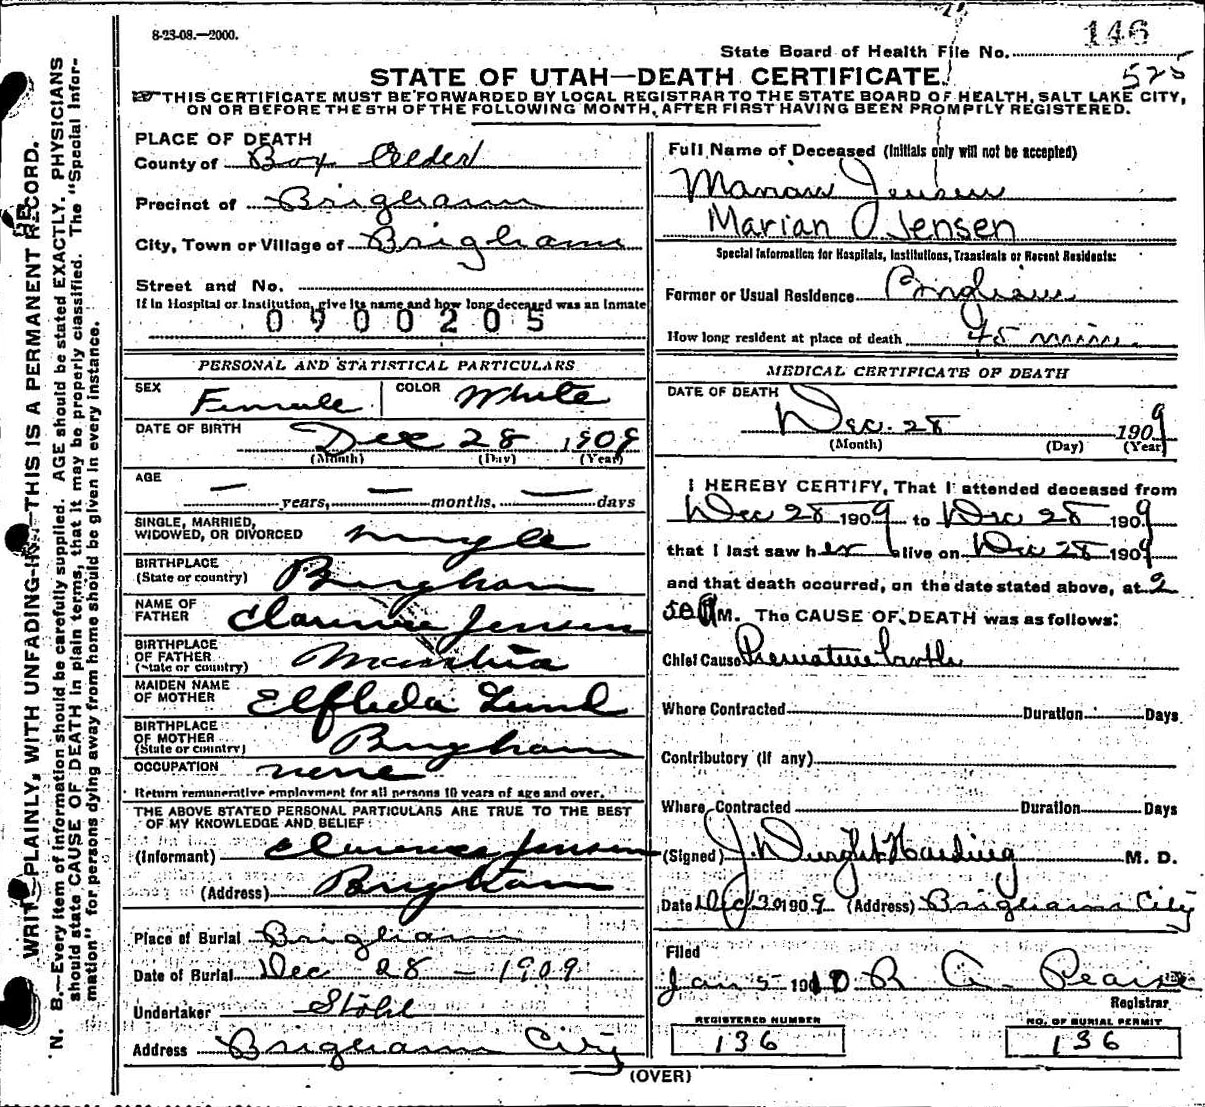 8-23-08.—2000.
146
State Board of Health File No.
525
STATE OF UTAH—DEATH CERTIFICATE
THIS CERTIFICATE MUST BE FORWARDED BY LOCAL REGISTRAR TO THE STATE BOARD OF HEALTH, SALT LAKE CITY,
ON OR BEFORE THE 5TH OF THE FOLLOWING MONTH, AFTER FIRST HAVING BEEN PROMPTLY REGISTERED.
WRITE PLAINLY, WITH UNFADING INK—THIS IS A PERMANENT RECORD.
N. B.—Every item of information should be carefully supplied. AGE should be stated EXACTLY. PHYSICIANS
should state CAUSE OF DEATH in plain terms, that it may be properly classified. The "Special Infor-
mation" for persons dying away from home should be given in every instance.
PLACE OF DEATH
County of Box Elder
Precinct of Brigham
City, Town or Village of Brigham
Street and No.
If in Hospital or Institution, give its name and how long deceased was an inmate
0900205
PERSONAL AND STATISTICAL PARTICULARS
SEX Female COLOR White
DATE OF BIRTH Dec 28 1909
(Month) (Day) (Year)
AGE
— years, — months, — days
SINGLE, MARRIED,
WIDOWED, OR DIVORCED single
BIRTHPLACE
(State or country) Brigham
NAME OF
FATHER Clarence Jensen
BIRTHPLACE
OF FATHER
(State or country) Mantua
MAIDEN NAME
OF MOTHER Elfleda Lund
BIRTHPLACE
OF MOTHER
(State or country) Brigham
OCCUPATION none
Return remunerative employment for all persons 10 years of age and over.
THE ABOVE STATED PERSONAL PARTICULARS ARE TRUE TO THE BEST
OF MY KNOWLEDGE AND BELIEF
(Informant) Clarence Jensen
(Address) Brigham
Place of Burial Brigham
Date of Burial Dec 28 - 1909
Undertaker Stohl
Address Brigham City
Full Name of Deceased (Initials only will not be accepted)
Marian Jensen
Marian Jensen
Special Information for Hospitals, Institutions, Transients or Recent Residents:
Former or Usual Residence Brigham
How long resident at place of death 45 min.
MEDICAL CERTIFICATE OF DEATH
DATE OF DEATH
Dec. 28 1909
(Month) (Day) (Year)
I HEREBY CERTIFY, That I attended deceased from
Dec 28 1909 to Dec 28 1909
that I last saw her alive on Dec 28 1909
and that death occurred, on the date stated above, at 2
M. The CAUSE OF DEATH was as follows:
Chief Cause Premature birth
Where Contracted Duration Days
Contributory (if any)
Where Contracted Duration Days
(Signed) J. Dwight Harding M. D.
Date Dec 30 1909 (Address) Brigham City
Filed
Jan 5 1910 R A. Pearse
Registrar
REGISTERED NUMBER
136
NO. OF BURIAL PERMIT
136
(OVER)